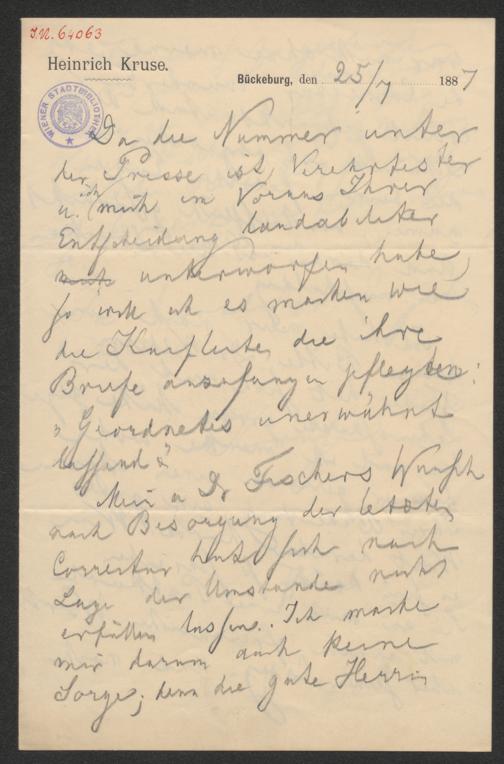 J.N. 64063
Heinrich Kruse.
Bückeburg, den 25/7 1887
WIENER STADTBIBLIOTHEK
Da die Nummer unter
der Presse ist, Verehrtester
u. ich mich im Voraus Ihrer
Entscheidung
unterworfen habe,
so will ich es machen wie
die Kaufleute, die ihre
Briefe anzufangen pflegten:
„Geordnetes unerwähnt
lassend"
Mein u Dr Fischers Wunsch
nach Besorgung der letzten
Correctur hat sich nach
Lage der Umstände nicht
erfüllen lassen. Ich mache
mir darum auch keine
Sorge; denn die gute Herrin